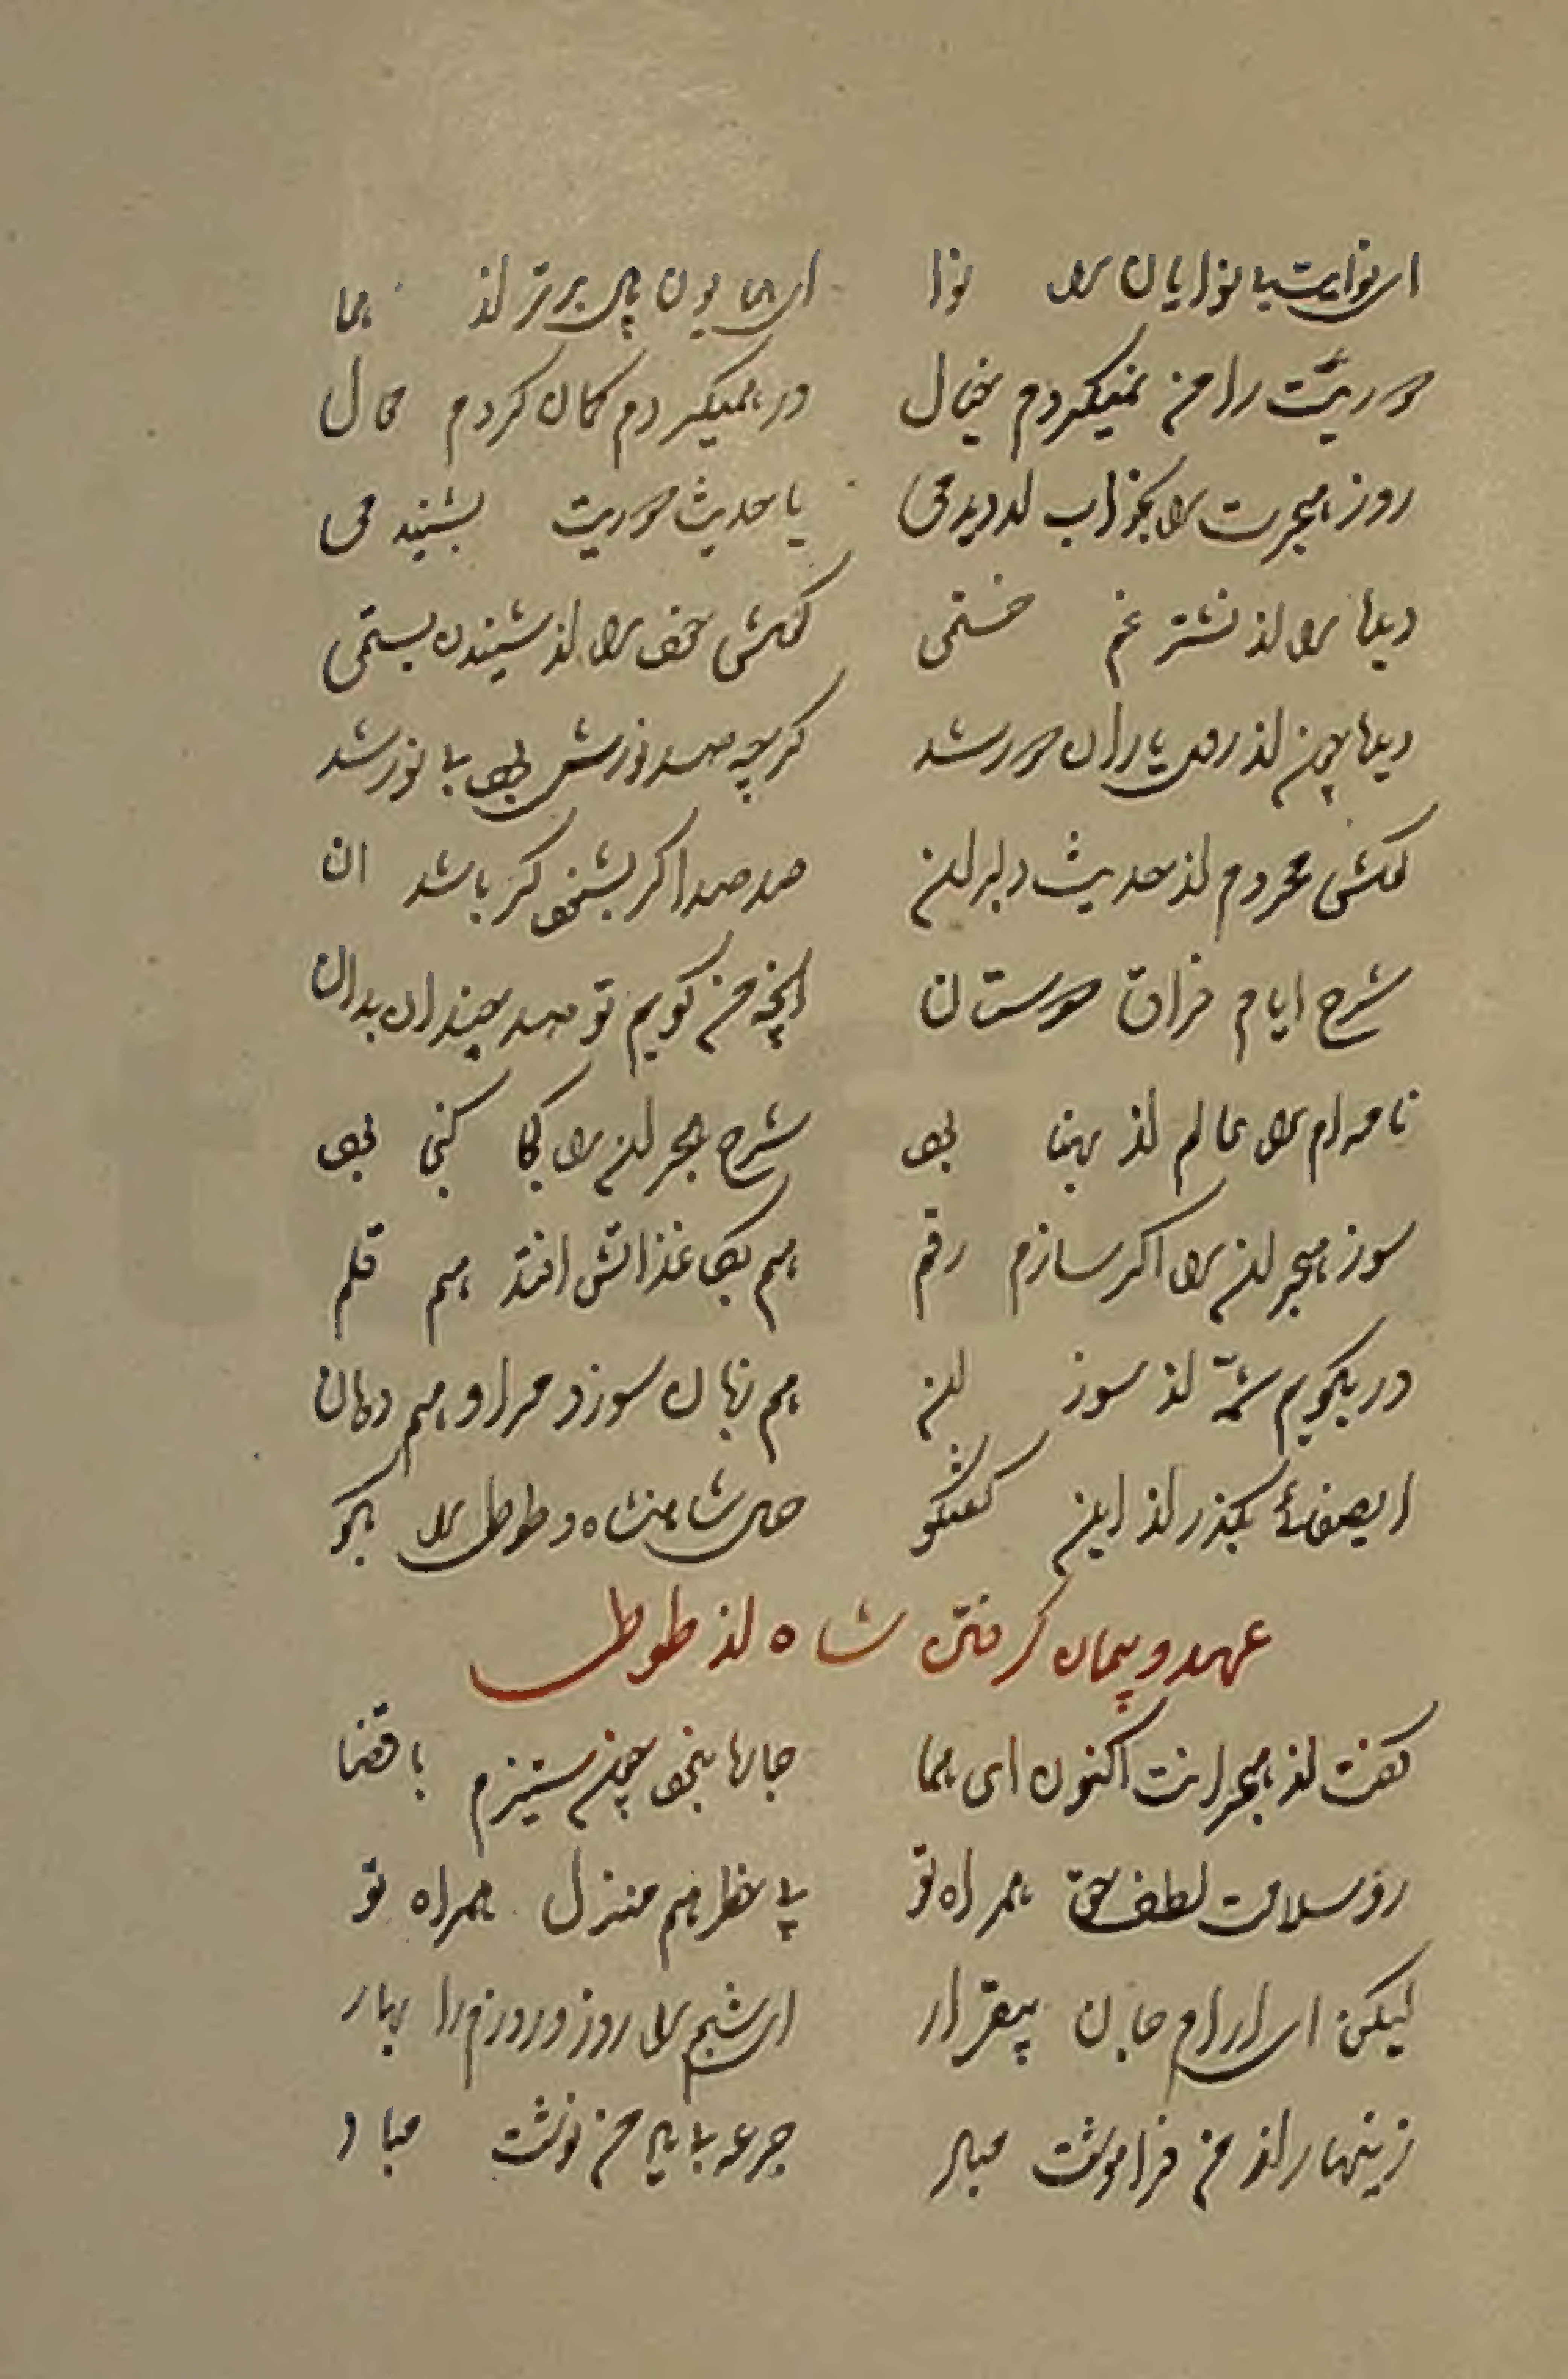 ای نوایت بانوایان را نوا ای همایون پای برتر از هما
دوریت را من نمیکردم خیال ور همیکردم کمان کردم محال
روز هجرت را بخواب ار دیدمی یا حدیث دوریت بشنیدمی
دیدها را از نشتر غم خستمی کوش خود را از شنیدن بستمی
دیدها چون از روی یاران دور شد کرچه صد نورش بود بانور شد
کوش محروم از حدیث دلبران صد صدا کر بشنود کر باشد ان
شرح ایام فراق دوستان انچه من کویم تو صد چندان بدان
نامه ام را عالم از پهنا بود شرح هجران را کجا کنجی بود
سوز هجران را اکر سازم رقم هم بکاغذ اتش افتد هم قلم
ور بکویم شمّه از سوز ان هم زبان سوزد مرا و هم دهان
ای صفائی بکذر از این کفتکو حال شاهنشاه و طوطی را بکو
عهد و پیمان کرفتن شاه از طوطی
کفت از هجرانت اکنون ای هما چارها نبود چون ستیزم با قضا
رو سلامت لطف حق همراه تو بی خطر هم منزل همراه تو
لیکن ای ارام جان بیقرار ای شبم را روز و روزم را بهار
زینهار از من فراموشت مباد جرعه با یاد من نوشت مباد